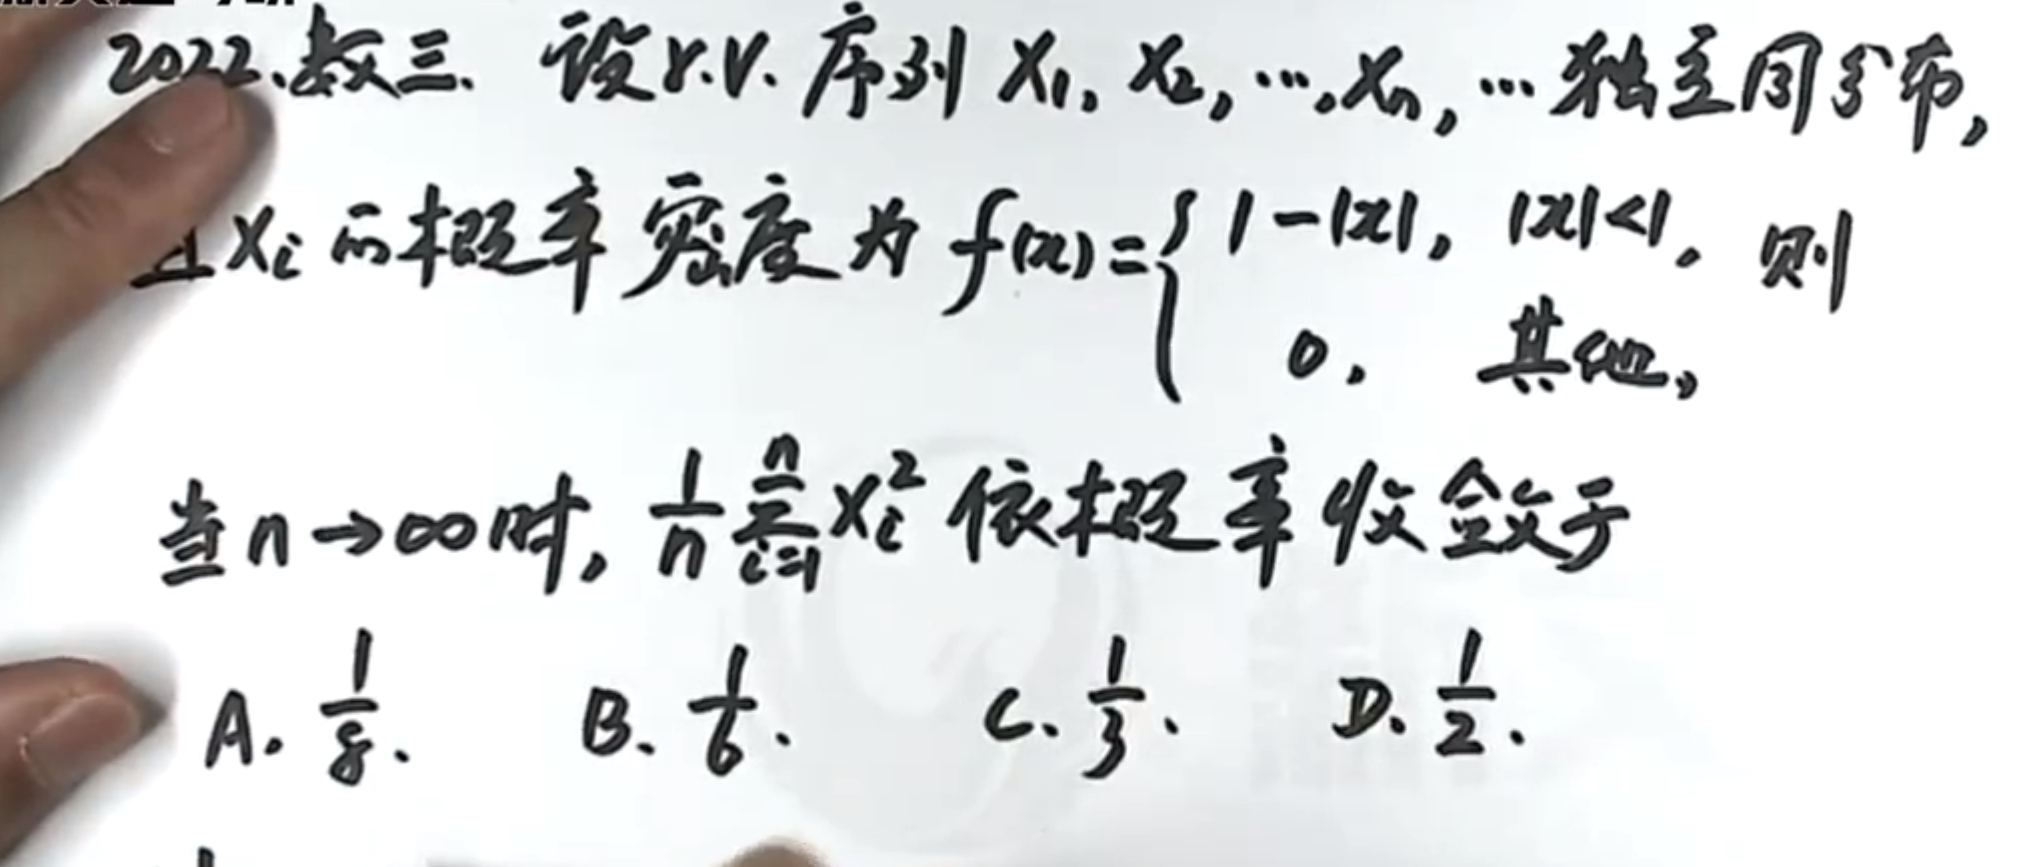 2022.数三. 设r.v.序列 X₁, X₂, …, Xₙ, … 独立同分布,
且Xᵢ的概率密度为 f(x)={ 1-|x|, |x|<1, 则
0, 其他,
当n→∞时, 1/n ∑ᵢ₌₁ⁿ Xᵢ² 依概率收敛于
A. 1/8. B. 1/6. C. 1/3. D. 1/2.